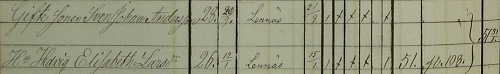 Gift Joner Sven Johan Anderson 26. 20/9. Lennäs 2/8 1 + + + 1
Hu Hedvig Elisabeth Lars dr 26. 12/1 Lennäs 15/1 1 + + + 1 51. 71. 108.